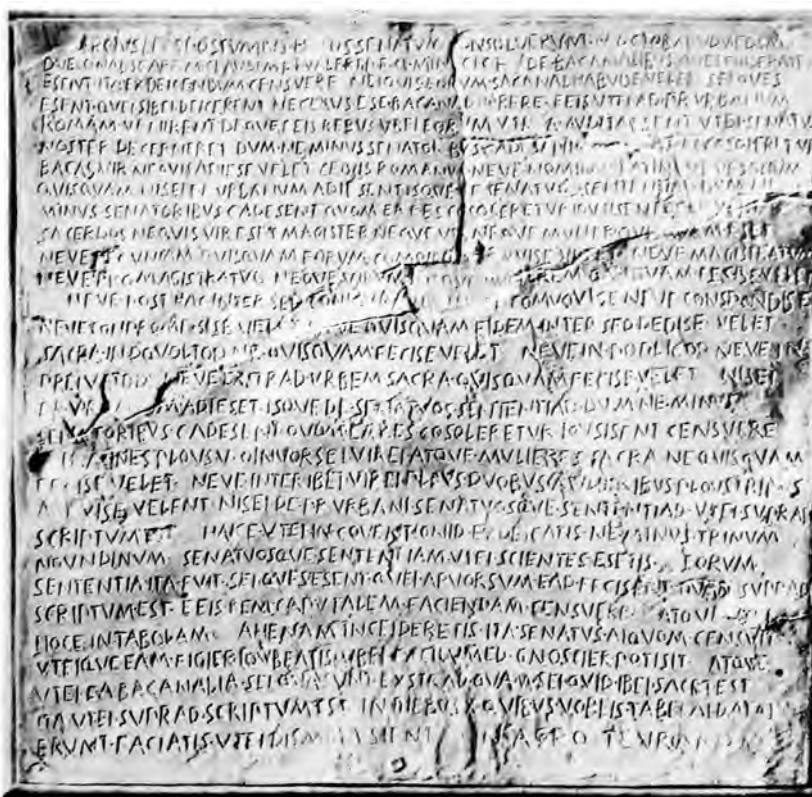 POSTVMIVS SENATVM CONSOLVERVNT N OCTOB APVD AEDEM
DVELONAI SC ARF M CLAVDI M F L VALERI P F Q MINVCI C F DE BACANALIBVS QVEI FOIDERATEI
ESENT ITA EXDEICENDVM CENSVERE NEIQVIS EORVM SACANAL HABVISE VELET SEI QVES
ESENT QVEI SIBEI DEICERENT NECESVS ESE BACANAL HABERE EEIS VTEI AD PR VRBANVM
ROMAM VENIRENT DEQVE EEIS REBVS VBEI EORVM VTR A AVDITA ESENT VTEI SENATVS
NOSTER DECERNERET DVM NE MINVS SENATORBVS C ADESENT A RES COSOLORETVR
BACAS VIR NEQVIS ADIESE VELET CEIVIS ROMANVS NEVE NOMINVS LATINI NEVE SOCIVM
QVISQVAM NISEI PR VRBANVM ADIESENT ISQVE DE SENATVOS SENTENTIAD DVM NE
MINVS SENATORIBVS C ADESENT QVOM EA RES COSOLERETVR IOVSISENT
SACERDOS NEQVIS VIR ESET MAGISTER NEQVE VIR NEQVE MVLIER QVISQVAM ESET
NEVE PECVNIAM QVISQVAM EORVM COMOINEM NEVE MAGISTRATVM
NEVE PRO MAGISTRATVD NEQVE VIRVM NEQVE MVLIEREM QVIQVAM FECISE VELET
NEVE POST HAC INTER SED CONIOVRA COMVOVISE NEVE CONSPONDISE
NEVE CONPROMESISE VELET NEVE QVISQVAM FIDEM INTER SED DEDISE VELET
SACRA IN DQVOLTOD NE QVISQVAM FECISE VELET NEVE IN POPLICOD NEVE IN
PREIVATOD NEVE EXSTRAD VRBEM SACRA QVISQVAM FECISE VELET NISEI
PR VRBANVM ADIESET ISQVE DE SENATVOS SENTENTIAD DVM NE MINVS
SENATORIBVS C ADESENT QVOM EA RES COSOLERETVR IOVSISENT CENSVERE
HOMINES PLOVS V OINVORSEI VIREI ATQVE MVLIERES SACRA NE QVISQVAM
FECISE VELET NEVE INTER IBEI VIREI PLOVS DVOBVS MVLIERIBVS PLOVS TRIBVS
ARFVISE VELENT NISEI DE PR VRBANI SENATVOSQVE SENTENTIAD VTEI SVPRAD
SCRIPTVM EST HAICE VTEI IN COVENTIONID EXDEICATIS NE MINVS TRINVM
NOVNDINVM SENATVOSQVE SENTENTIAM VTEI SCIENTES ESETIS EORVM
SENTENTIA ITA FVIT SEI QVES ESENT QVEI ARVORSVM EAD FECISENT QVAM SVPRAD
SCRIPTVM EST EEIS REM CAPVTALEM FACIENDAM CENSVERE ATQVE
HOCE IN TABOLAM AHENAM INCEIDERETIS ITA SENATVS AIQVOM CENSVIT
VTEIQVE EAM FIGIER IOVBEATIS VBEI FACILVMED GNOSCIER POTISIT ATQVE
VTEI EA BACANALIA SEI QVA SVNT EXSTRAD QVAM SEI QVID IBEI SACRI EST
ITA VTEI SVPRAD SCRIPTVM EST IN DIEBVS X QVIBVS VOBEIS TABELAI DATAI
ERVNT FACIATIS VTEI DISMOTA SIENT IN AGRO TEVRANO